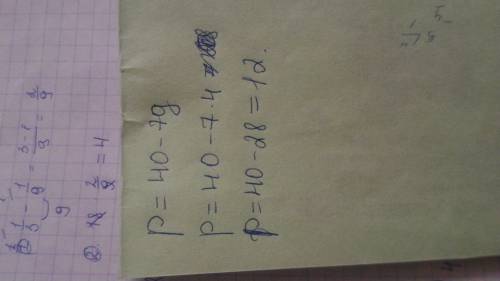 1/3 - 1/9 = 3-1/9 = 2/9
9
② 18 2/9 = 4
p = 40 - 7g
p = 40 - 7 · 4
p = 40 - 28 = 12.